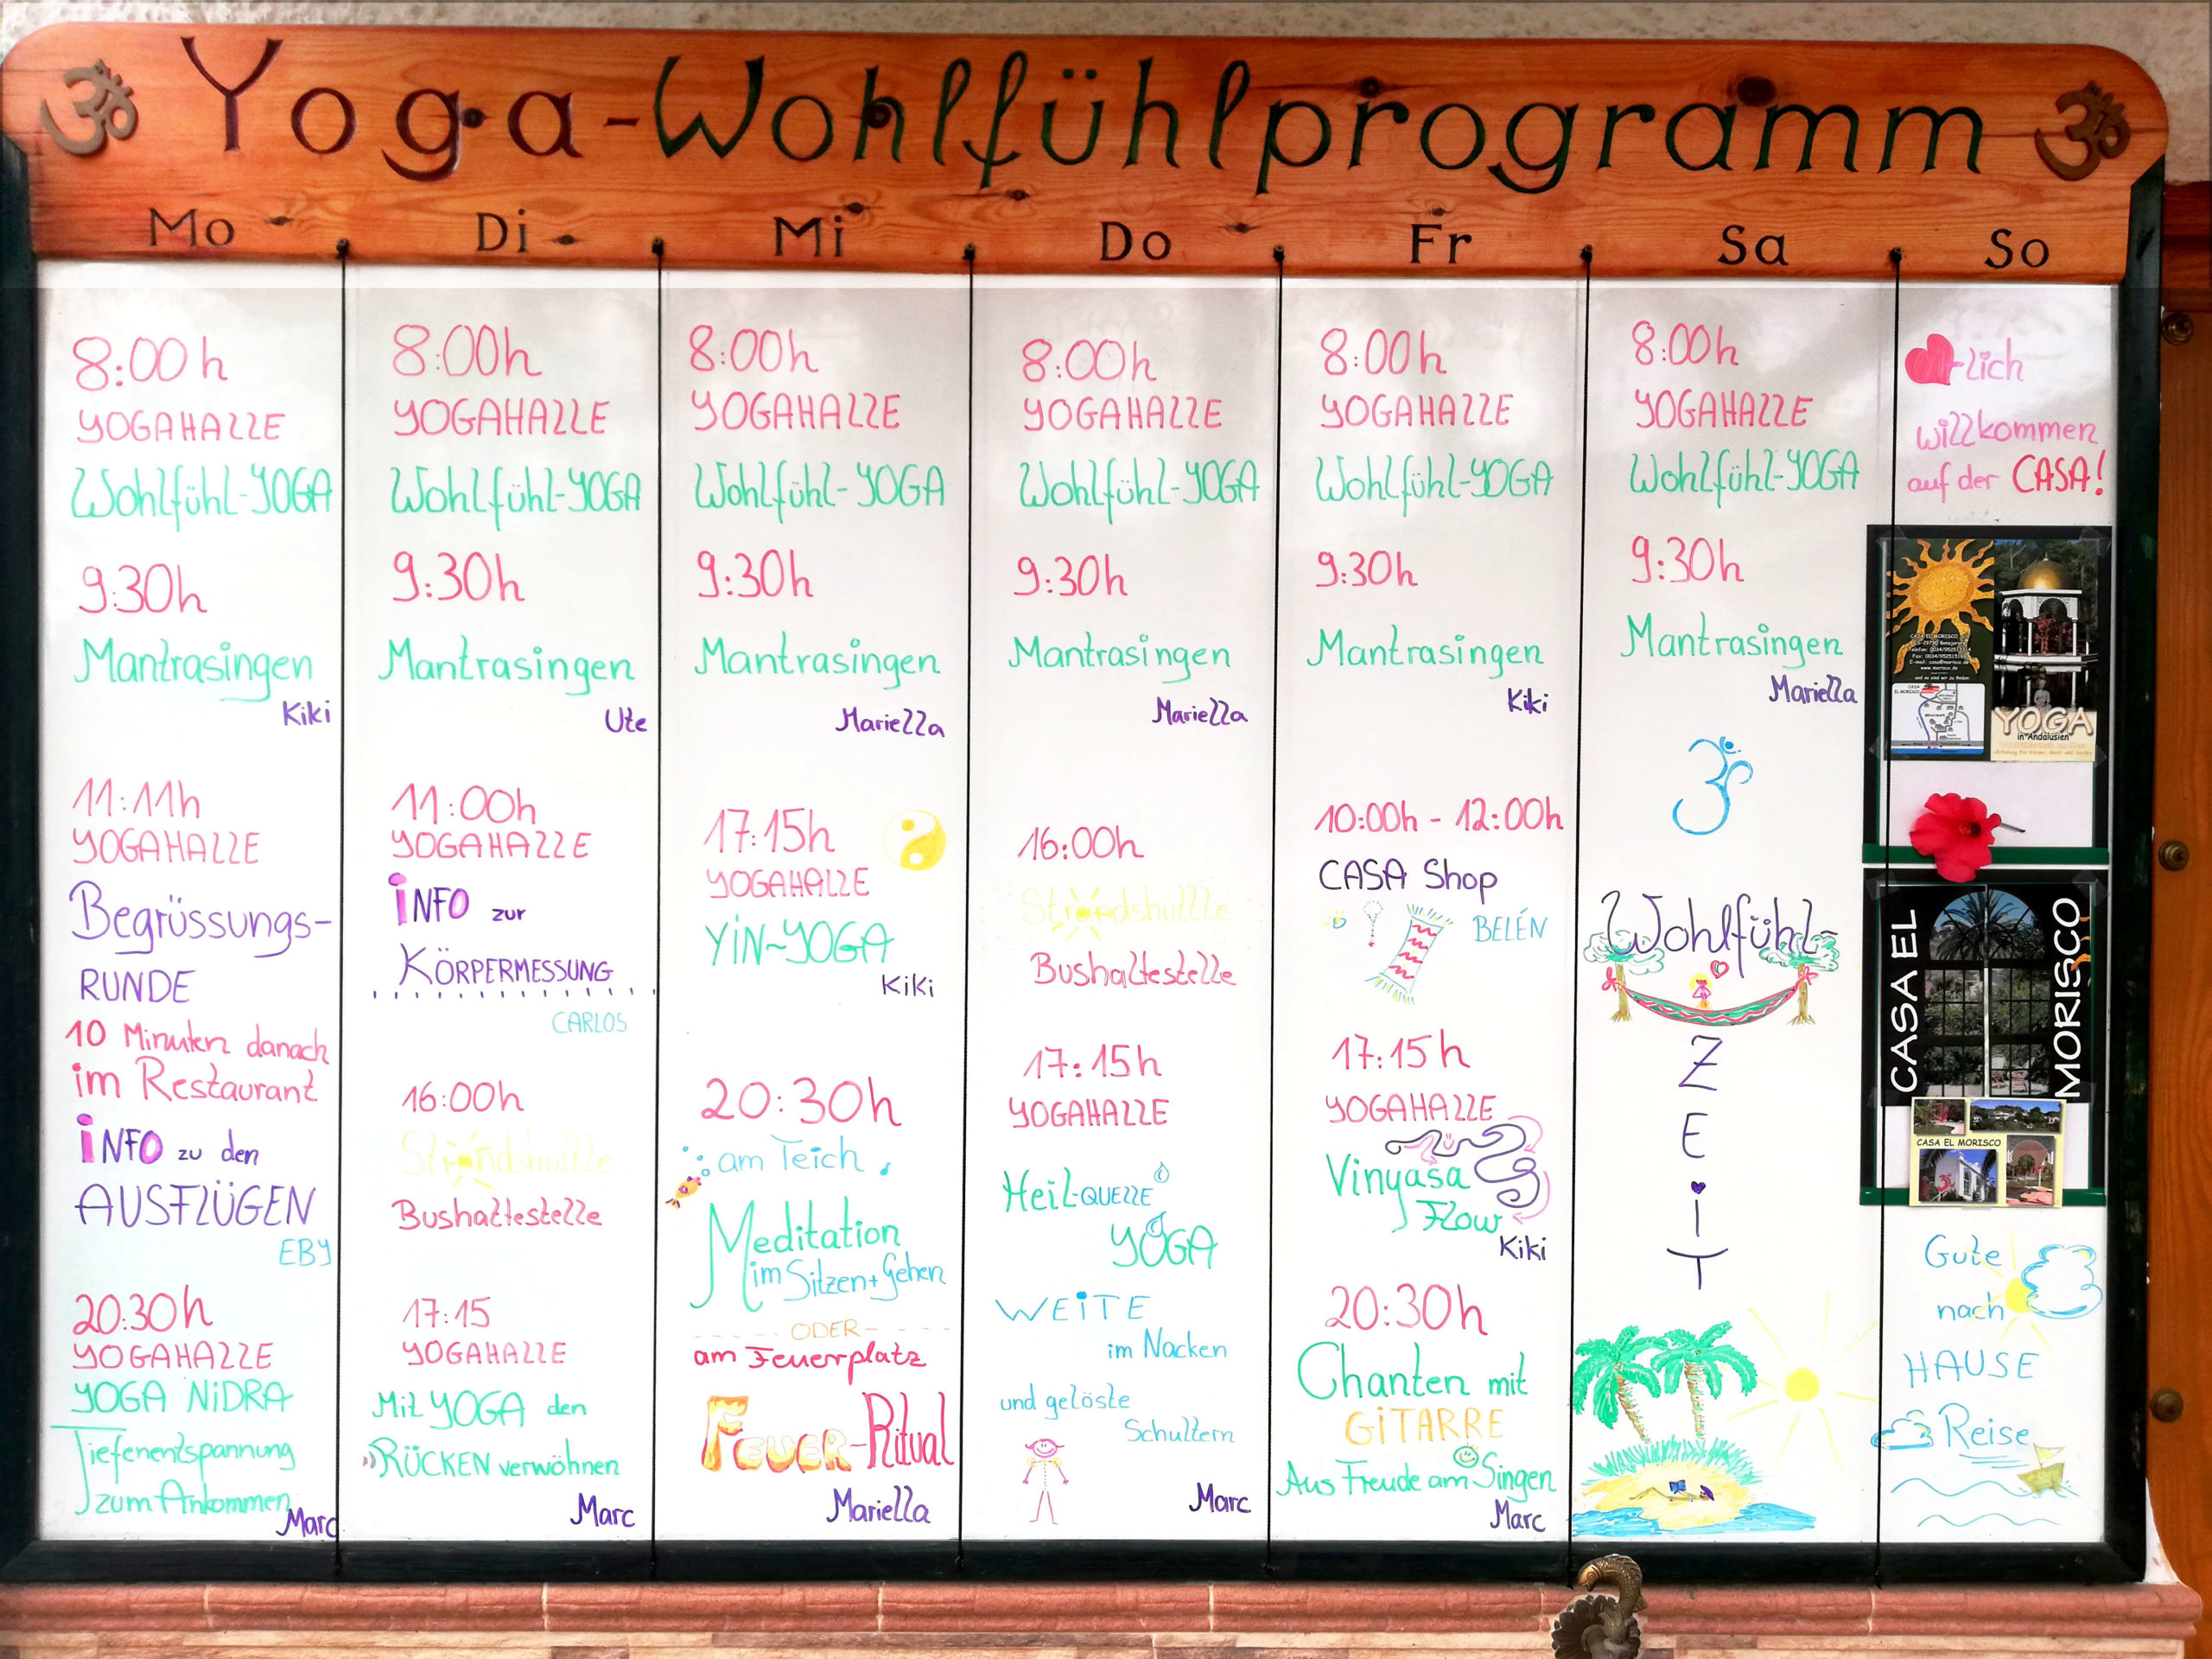 Yoga-Wohlfühlprogramm
Mo
Di
Mi
Do
Fr
Sa
So
8:00h
YOGAHALLE
Wohlfühl-YOGA
9:30h
Mantrasingen
Kiki
11:11h
YOGAHALLE
Begrüssungs-
RUNDE
10 Minuten danach
im Restaurant
iNFO zu den
AUSFLÜGEN
EBY
20:30h
YOGAHALLE
YOGA NiDRA
Tiefenentspannung
zum Ankommen
Marc
8:00h
YOGAHALLE
Wohlfühl-YOGA
9:30h
Mantrasingen
Ute
11:00h
YOGAHALLE
iNFO zur
KÖRPERMESSUNG
CARLOS
16:00h
Strandshuttle
Bushaltestelle
17:15
YOGAHALLE
Mit YOGA den
RÜCKEN verwöhnen
Marc
8:00h
YOGAHALLE
Wohlfühl-YOGA
9:30h
Mantrasingen
Mariella
17:15h
YOGAHALLE
YiN~YOGA
Kiki
20:30h
am Teich
Meditation
im Sitzen+Gehen
ODER
am Feuerplatz
FEUER-Ritual
Mariella
8:00h
YOGAHALLE
Wohlfühl-YOGA
9:30h
Mantrasingen
Mariella
16:00h
Strandshuttle
Bushaltestelle
17:15h
YOGAHALLE
Heil-QUELLE
YOGA
WEiTE
im Nacken
und gelöste
Schultern
Marc
8:00h
YOGAHALLE
Wohlfühl-YOGA
9:30h
Mantrasingen
Kiki
10:00h - 12:00h
CASA Shop
BELÉN
17:15h
YOGAHALLE
Vinyasa
Flow
Kiki
20:30h
Chanten mit
GiTARRE
Aus Freude am Singen
Marc
8:00h
YOGAHALLE
Wohlfühl-YOGA
9:30h
Mantrasingen
Mariella
ॐ
Wohlfühl-
Z
E
I
T
-lich
willkommen
auf der CASA!
YOGA
in Andalusien
CASA EL
MORISCO
CASA EL MORISCO
Gute
nach
HAUSE
Reise